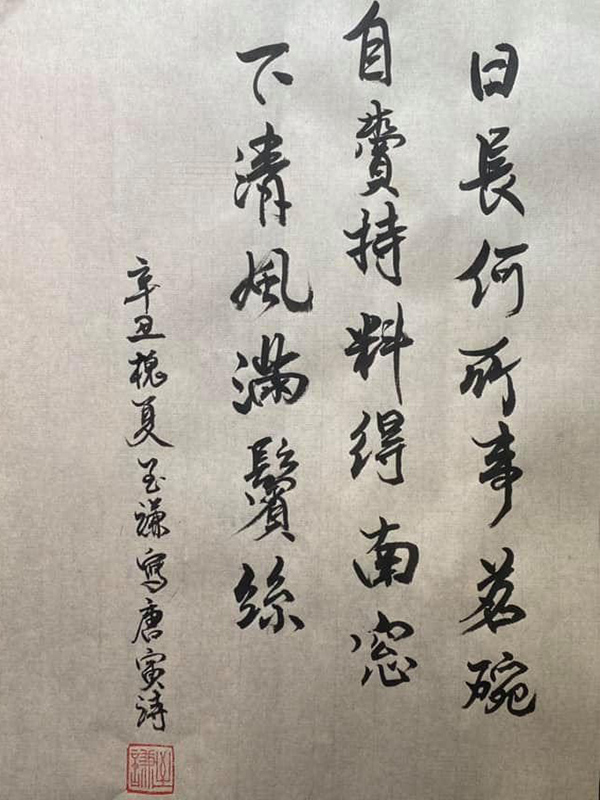 日長何所事茗碗
自賷持料得南窓
下清風滿鬢絲
辛丑槐夏至謙寫唐寅詩
至謙